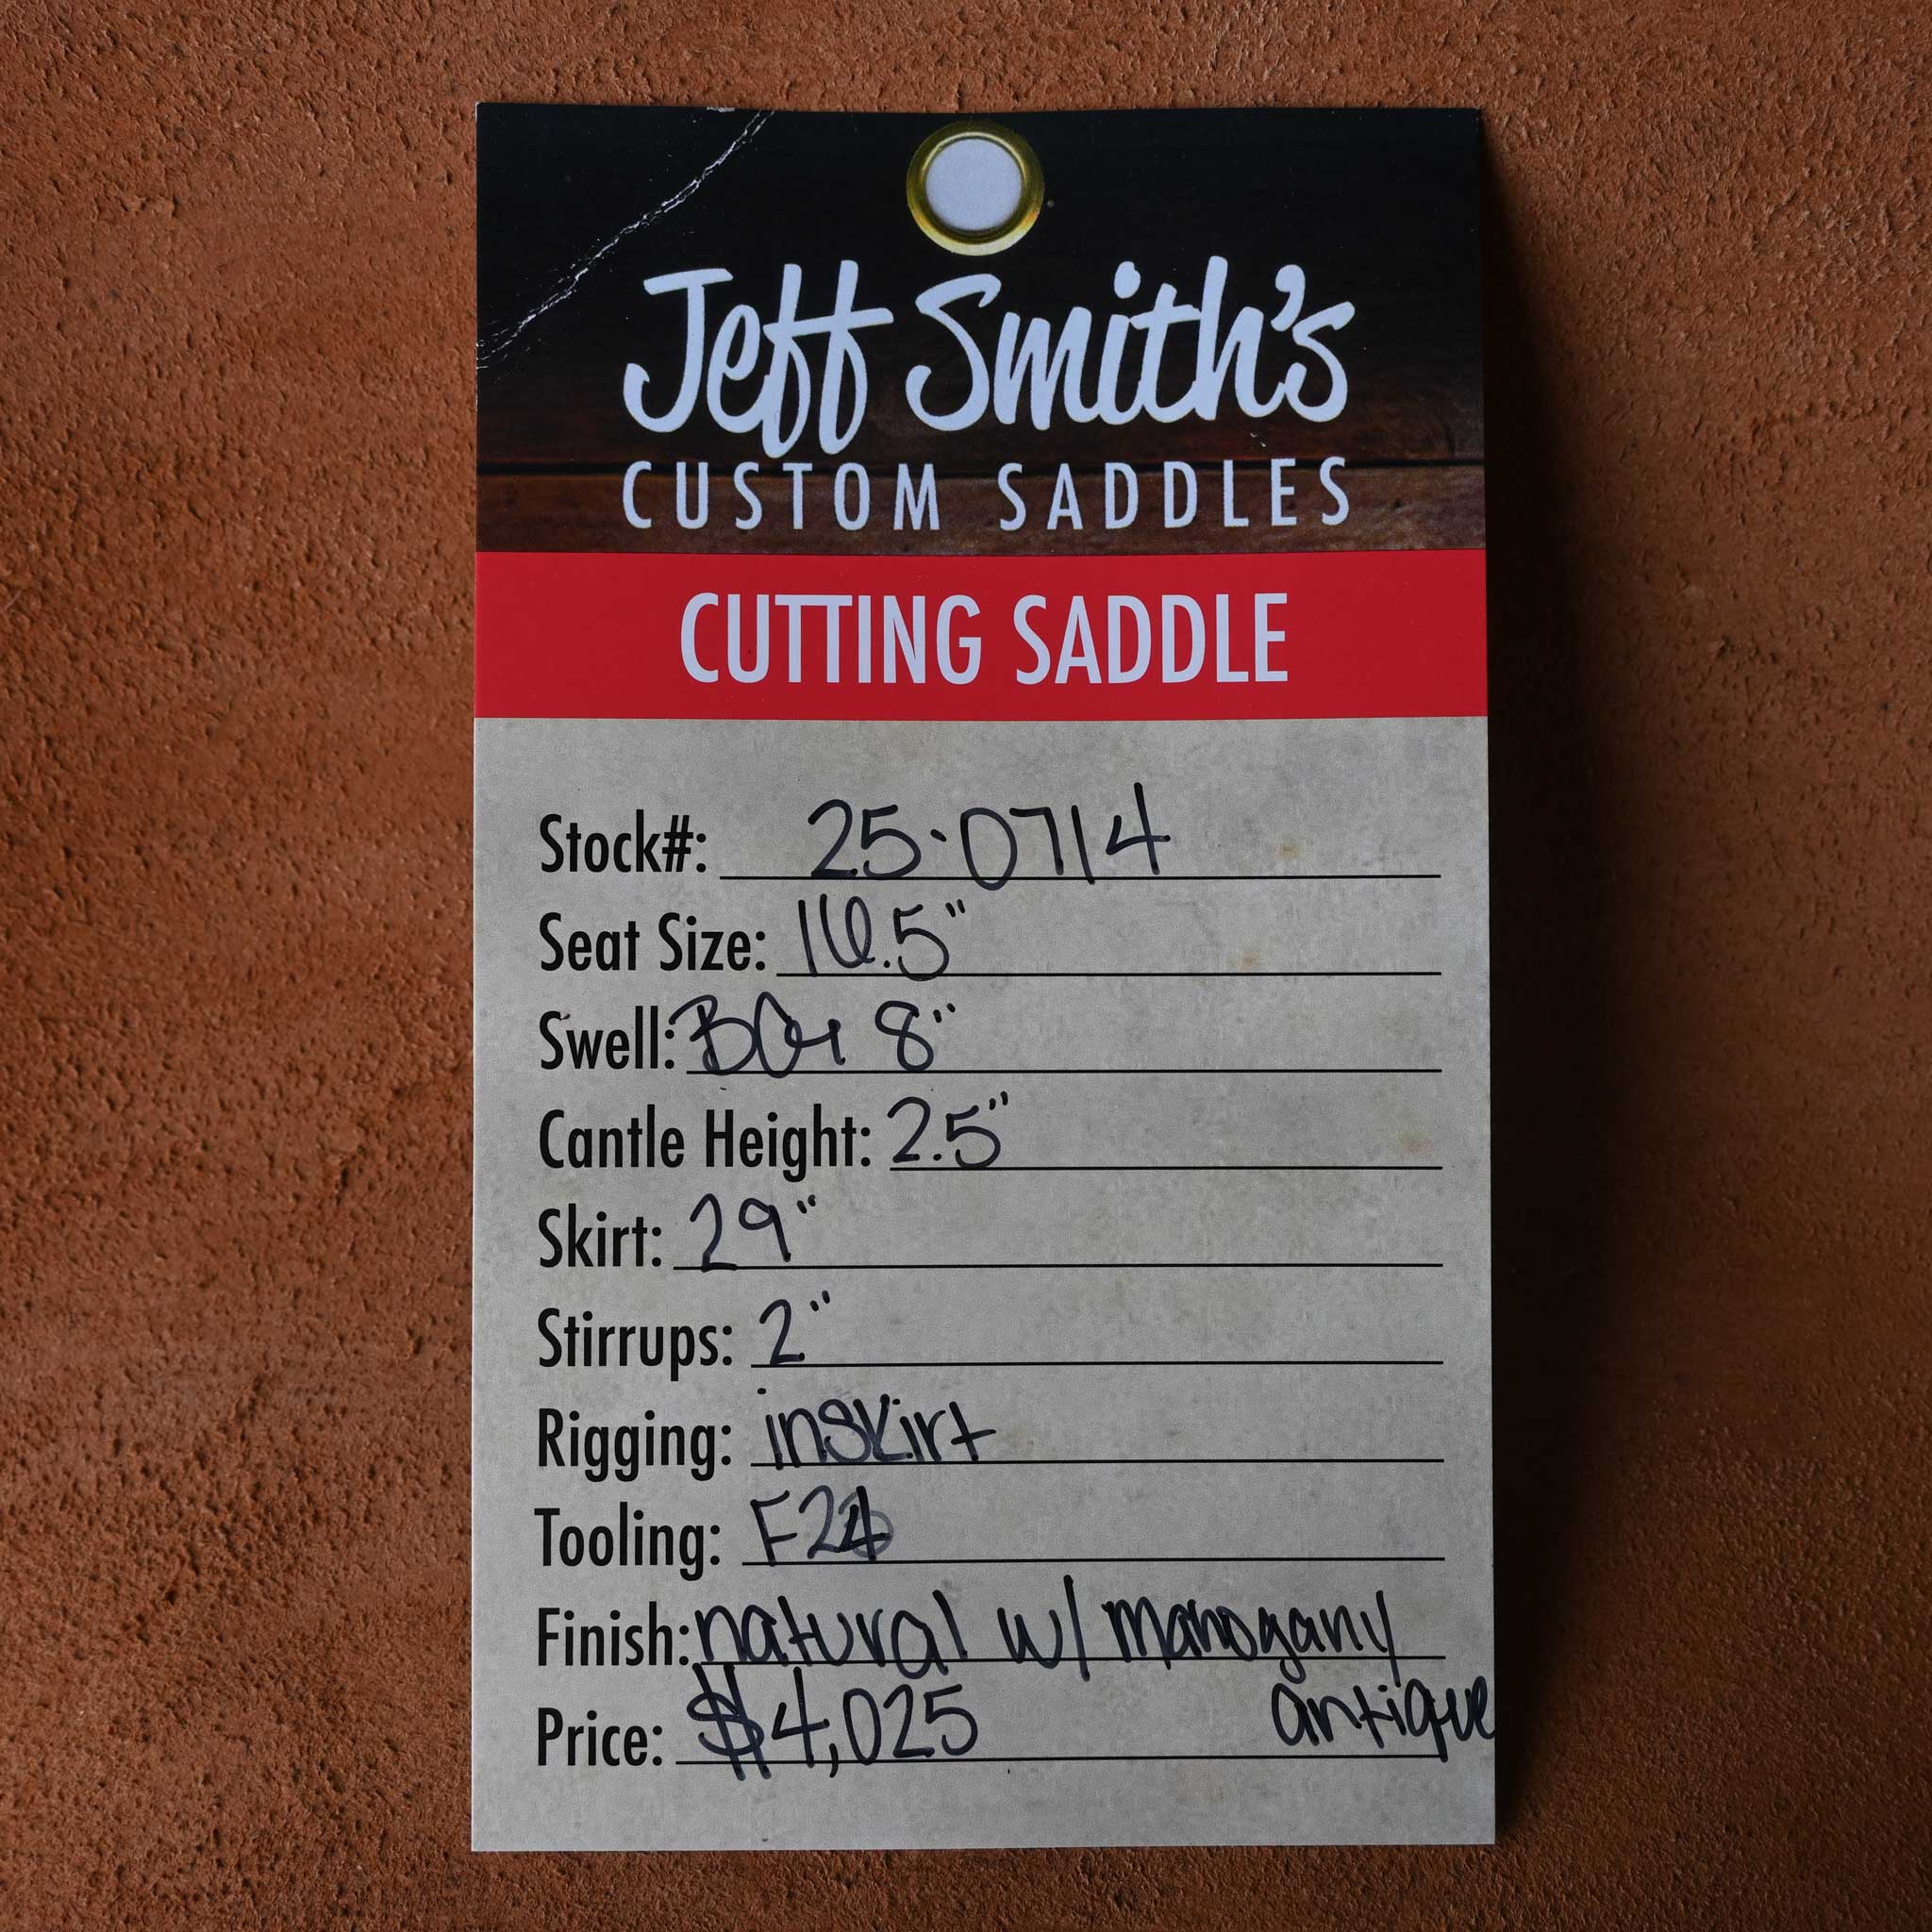 Jeff Smith's
CUSTOM SADDLES
CUTTING SADDLE
Stock#: 25·0714
Seat Size: 16.5"
Swell: 8"
Cantle Height: 2.5"
Skirt: 29"
Stirrups: 2"
Rigging: inskirt
Tooling:
Finish: natural w/ mahogany
antique
Price: $4,025